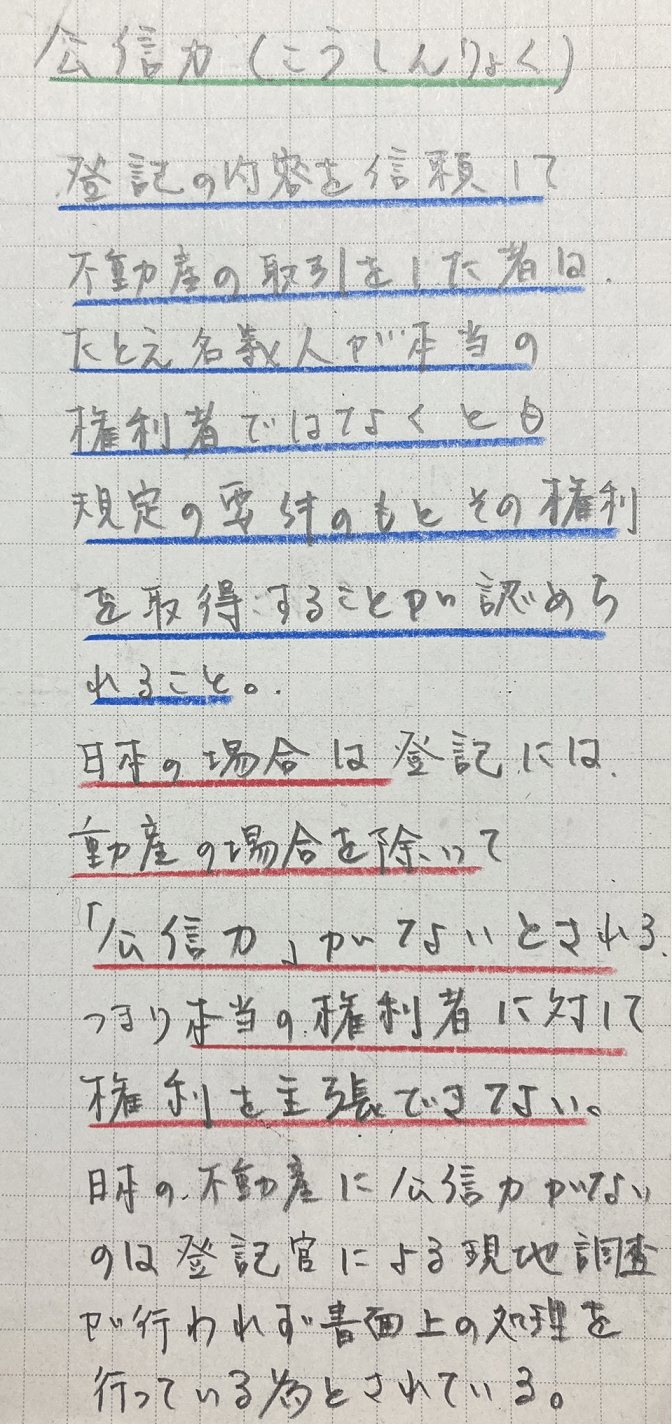 公信力(こうしんりょく)
登記の内容を信頼して
不動産の取引をした者は、
たとえ名義人が本当の
権利者ではなくとも
規定の要件のもとその権利
を取得することが認めら
れること。
日本の場合は登記には、
動産の場合を除いて
「公信力」がないとされる、
つまり本当の権利者に対して
権利を主張できない。
日本の不動産に公信力がない
のは登記官による現地調査
が行われず書面上の処理を
行っている為とされている。